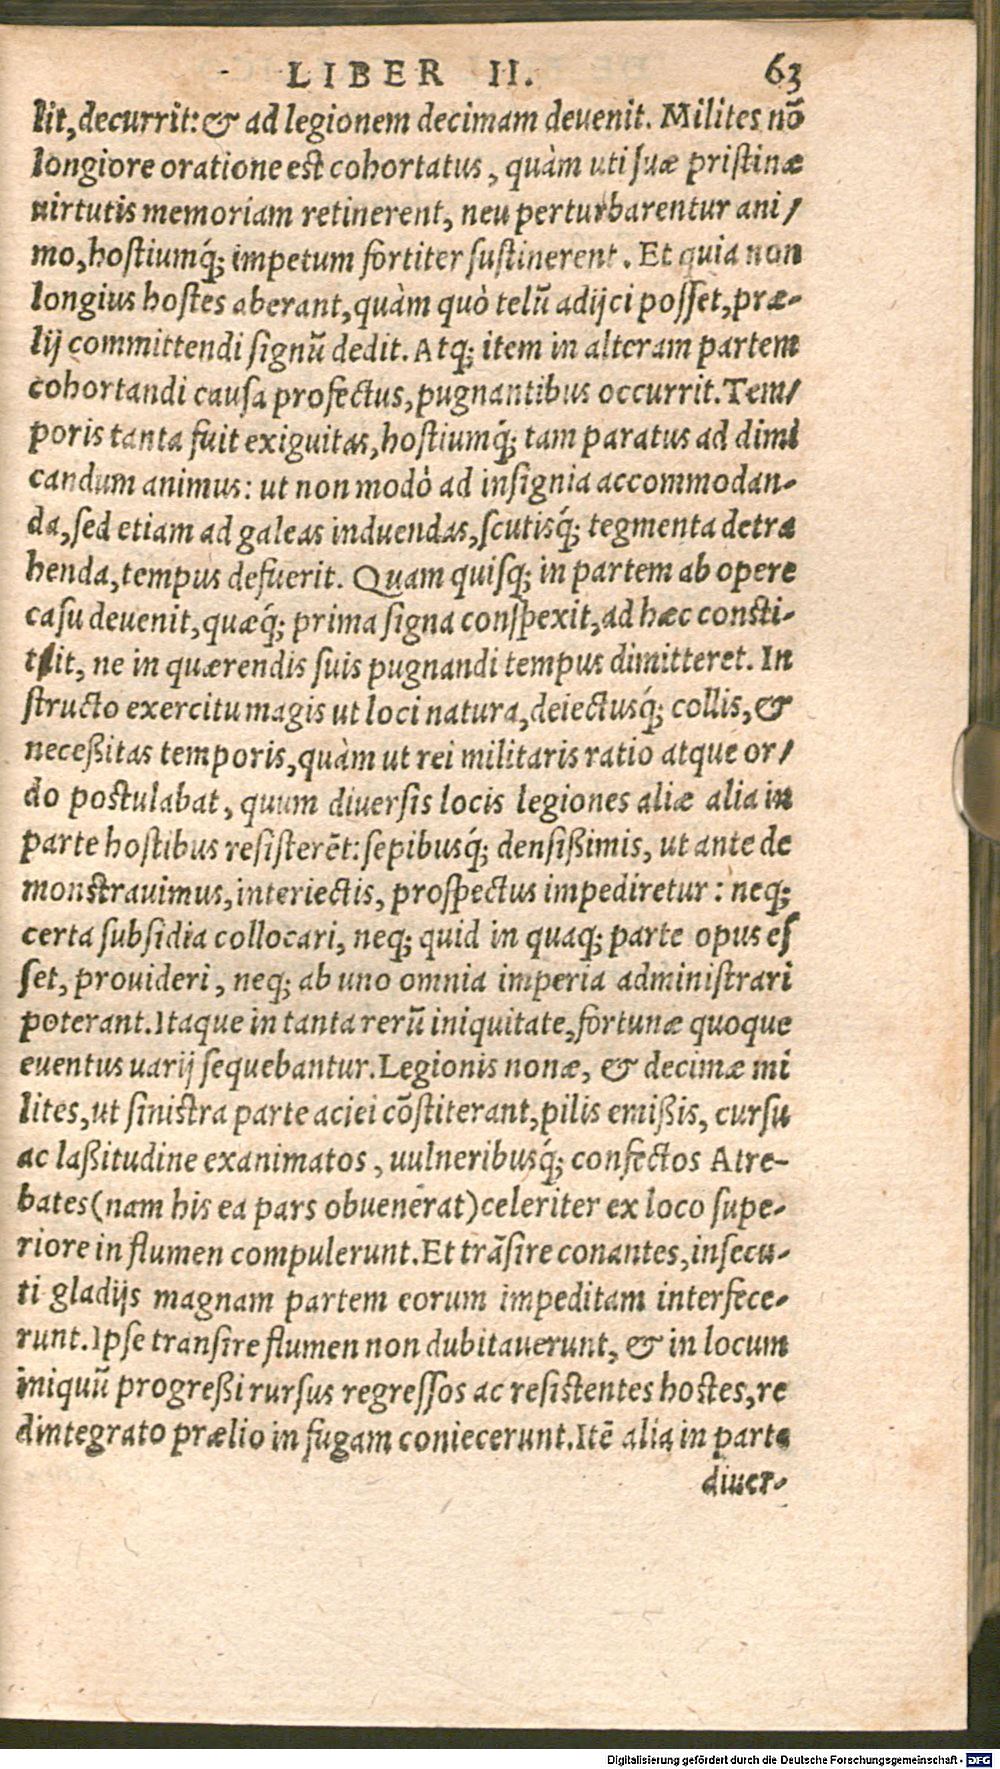 LIBER II. 63
lit, decurrit: & ad legionem decimam deuenit. Milites nō
longiore oratione est cohortatus, quàm uti suæ pristinæ
uirtutis memoriam retinerent, neu perturbarentur ani/
mo, hostiumq́; impetum fortiter sustinerent. Et quia non
longius hostes aberant, quàm quò telū adijci posset, præ-
lij committendi signū dedit. Atq; item in alteram partem
cohortandi causa profectus, pugnantibus occurrit. Tem/
poris tanta fuit exiguitas, hostiumq́; tam paratus ad dimi
candum animus: ut non modò ad insignia accommodan-
da, sed etiam ad galeas induendas, scutisq́; tegmenta detra
henda, tempus defuerit. Quam quisq; in partem ab opere
casu deuenit, quæq́; prima signa conspexit, ad hæc consti-
tit, ne in quærendis suis pugnandi tempus dimitteret. In
structo exercitu magis ut loci natura, deiectusq́; collis, &
neceßitas temporis, quàm ut rei militaris ratio atque or/
do postulabat, quum diuersis locis legiones aliæ alia in
parte hostibus resisterēt: sepibusq́; densißimis, ut ante de
monstrauimus, interiectis, prospectus impediretur: neq;
certa subsidia collocari, neq; quid in quaq; parte opus es
set, prouideri, neq; ab uno omnia imperia administrari
poterant. Itaque in tanta rerū iniquitate, fortunæ quoque
euentus uarij sequebantur. Legionis nonæ, & decimæ mi
lites, ut sinistra parte aciei cōstiterant, pilis emißis, cursu
ac laßitudine exanimatos, uulneribusq́; confectos Atre-
bates (nam his ea pars obuenerat) celeriter ex loco supe-
riore in flumen compulerunt. Et trāsire conantes, insecu-
ti gladijs magnam partem eorum impeditam interfece-
runt. Ipse transire flumen non dubitauerunt, & in locum
iniquū progreßi rursus regressos ac resistentes hostes, re
dintegrato prælio in fugam coniecerunt. Itē alia in parte
diuer-
Digitalisierung gefördert durch die Deutsche Forschungsgemeinschaft - DFG